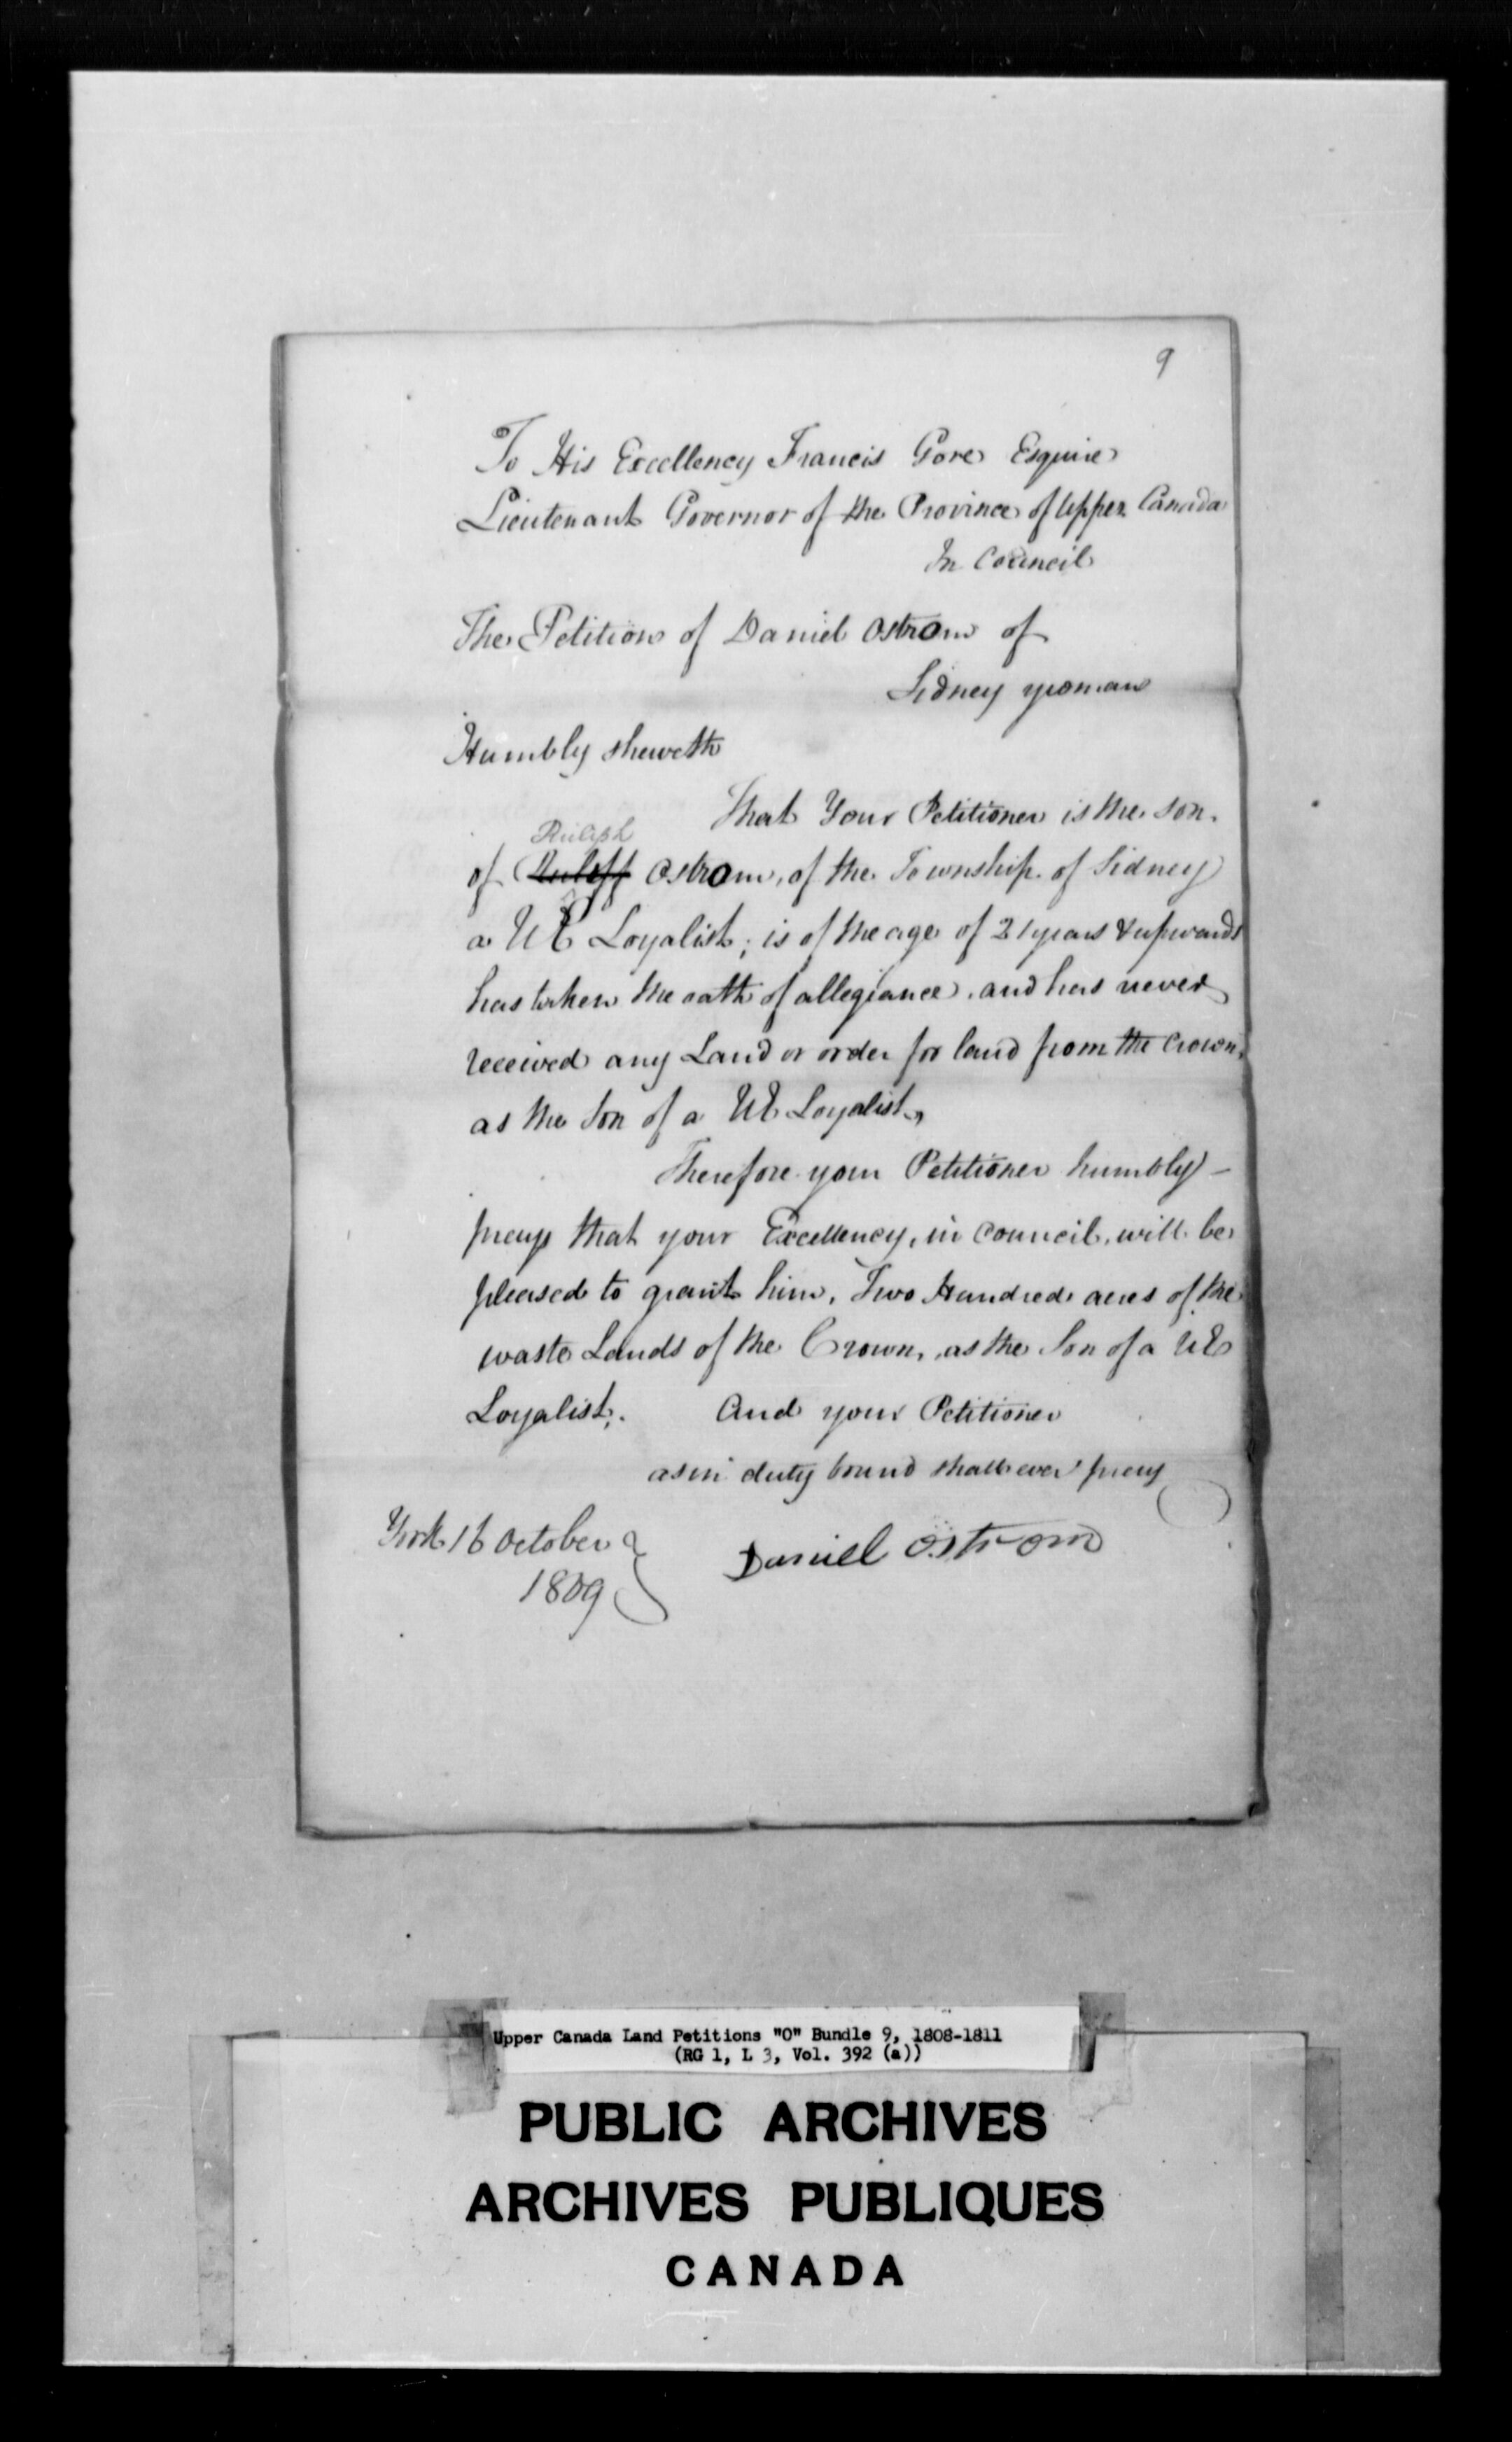 9
To His Excellency Francis Gore Esquire
Lieutenant Governor of the Province of Upper Canada
In Council
The Petition of Daniel Ostrom of
Sidney yeoman
Humbly sheweth
That Your Petitioner is the son
Ruliph
of Ruleff Ostrom, of the Township of Sidney
a UE Loyalist; is of the age of 21 years & upwards
has taken the oath of allegiance, and has never
received any Land or order for land from the Crown,
as the Son of a UE Loyalist,
Therefore your Petitioner humbly –
prays that your Excellency, in council, will be
pleased to grant him, Two Hundred acres of the
waste Lands of the Crown, as the Son of a UE
Loyalist. And your Petitioner
as in duty bound shall ever pray
York 16 October
1809
Daniel Ostrom
Upper Canada Land Petitions "O" Bundle 9, 1808-1811
(RG 1, L 3, Vol. 392 (a))
PUBLIC ARCHIVES
ARCHIVES PUBLIQUES
CANADA